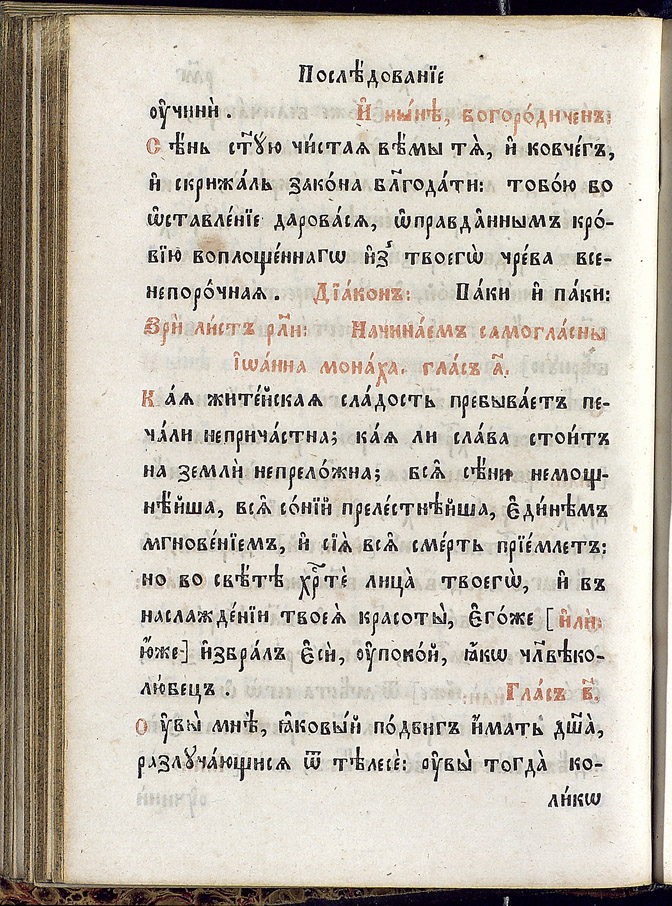 Послѣ́дованїе
ᲂу҆чинѝ . И҆ ны́нѣ, богоро́диченъ:
Сѣ́нь ст҃ꙋ́ю чи́стая вѣ́мы тѧ̀, и҆ ковче́гъ,
и҆ скрижа́ль зако́на бл҃года́ти: тобо́ю бо
ѡ҆ставле́нїе дарова́сѧ, ѡ҆правда̑ннымъ кро́-
вїю воплоще́ннагѡ и҆з̾ твоегѡ̀ чре́ва все-
непоро́чнаѧ . Дїа́конъ: Па́ки и҆ па́ки:
Зрѝ ли́стъ рл҃и: Начина́емъ самогла́сны
і҆ѡа́нна мона́ха. гла́съ а҃.
Ка́ѧ жите́йскаѧ сла́дость пребыва́етъ пе-
ча́ли неприча́стна; ка́ѧ ли сла́ва стои́тъ
на землѝ непрело́жна; всѧ̑ сѣ́ни немощ-
нѣ́йша, всѧ̑ со́нїй преле́стнѣйша, є҆ди́нѣмъ
мгнове́нїемъ, и҆ сїѧ̑ всѧ̑ сме́рть прїе́млетъ:
но во свѣ́тѣ хрⷭ҇тѐ лица̀ твоегѡ̀, и҆ въ
наслажде́нїи твоеѧ̀ красоты̀, є҆го́же [и҆лѝ:
ю҆́же] и҆збра́лъ є҆сѝ, ᲂу҆поко́й, ꙗ҆́кѡ чл҃вѣко-
лю́бецъ . Гла́съ в҃.
Оу҆вы̀ мнѣ̀, ꙗ҆ковы́й по́двигъ и҆́мать дш҃а̀,
разлꙋча́ющисѧ ѿ тѣлесѐ: ᲂу҆вы̀ тогда̀ ко-
ли́кѡ